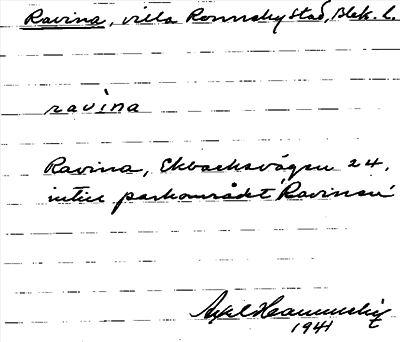 Ravina, villa Ronneby stad, Blek. l.
ravina
Ravina, Ekbacksvägen 24,
intill parkområdet "Ravinen"
Axel
1941